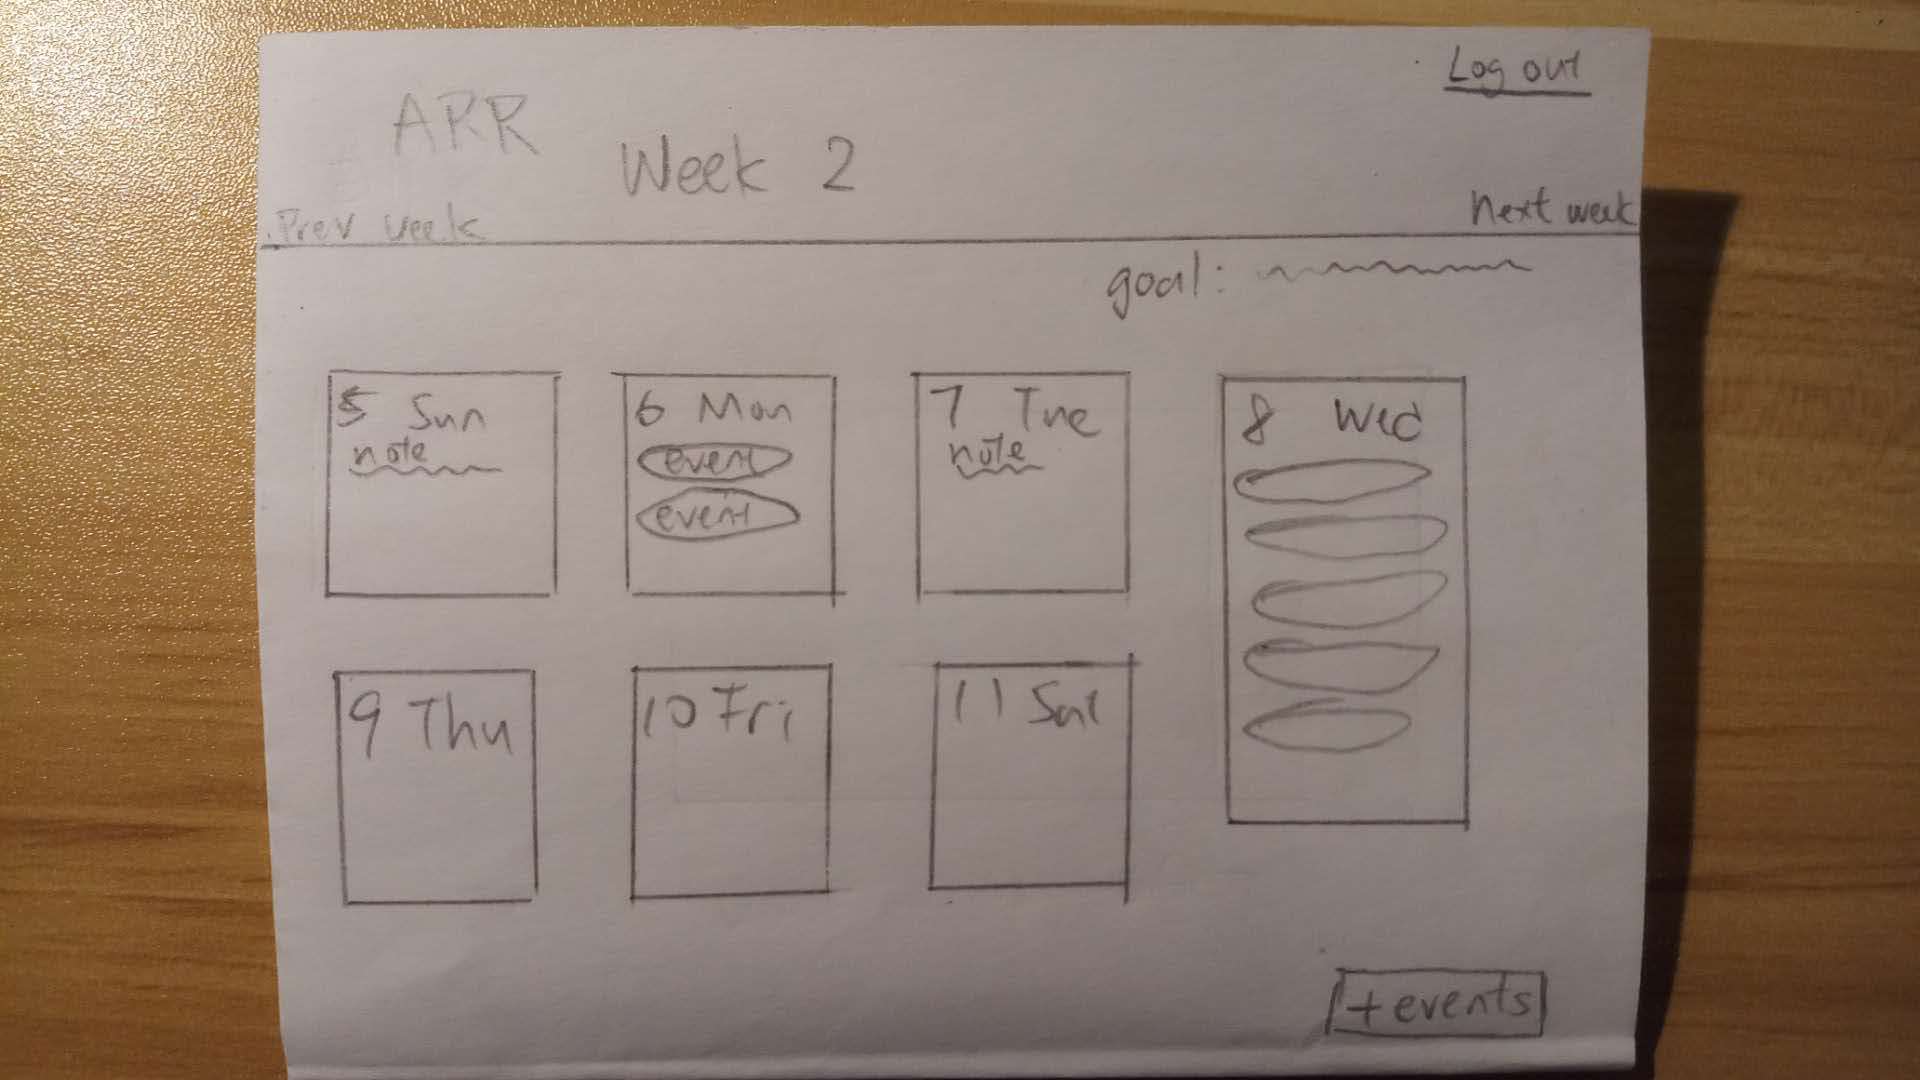 Log out
APR
Week 2
Prev week
Next week
goal:
5 Sun
note
6 Mon
event
event
7 Tue
note
8 Wed
9 Thu
10 Fri
11 Sat
+events